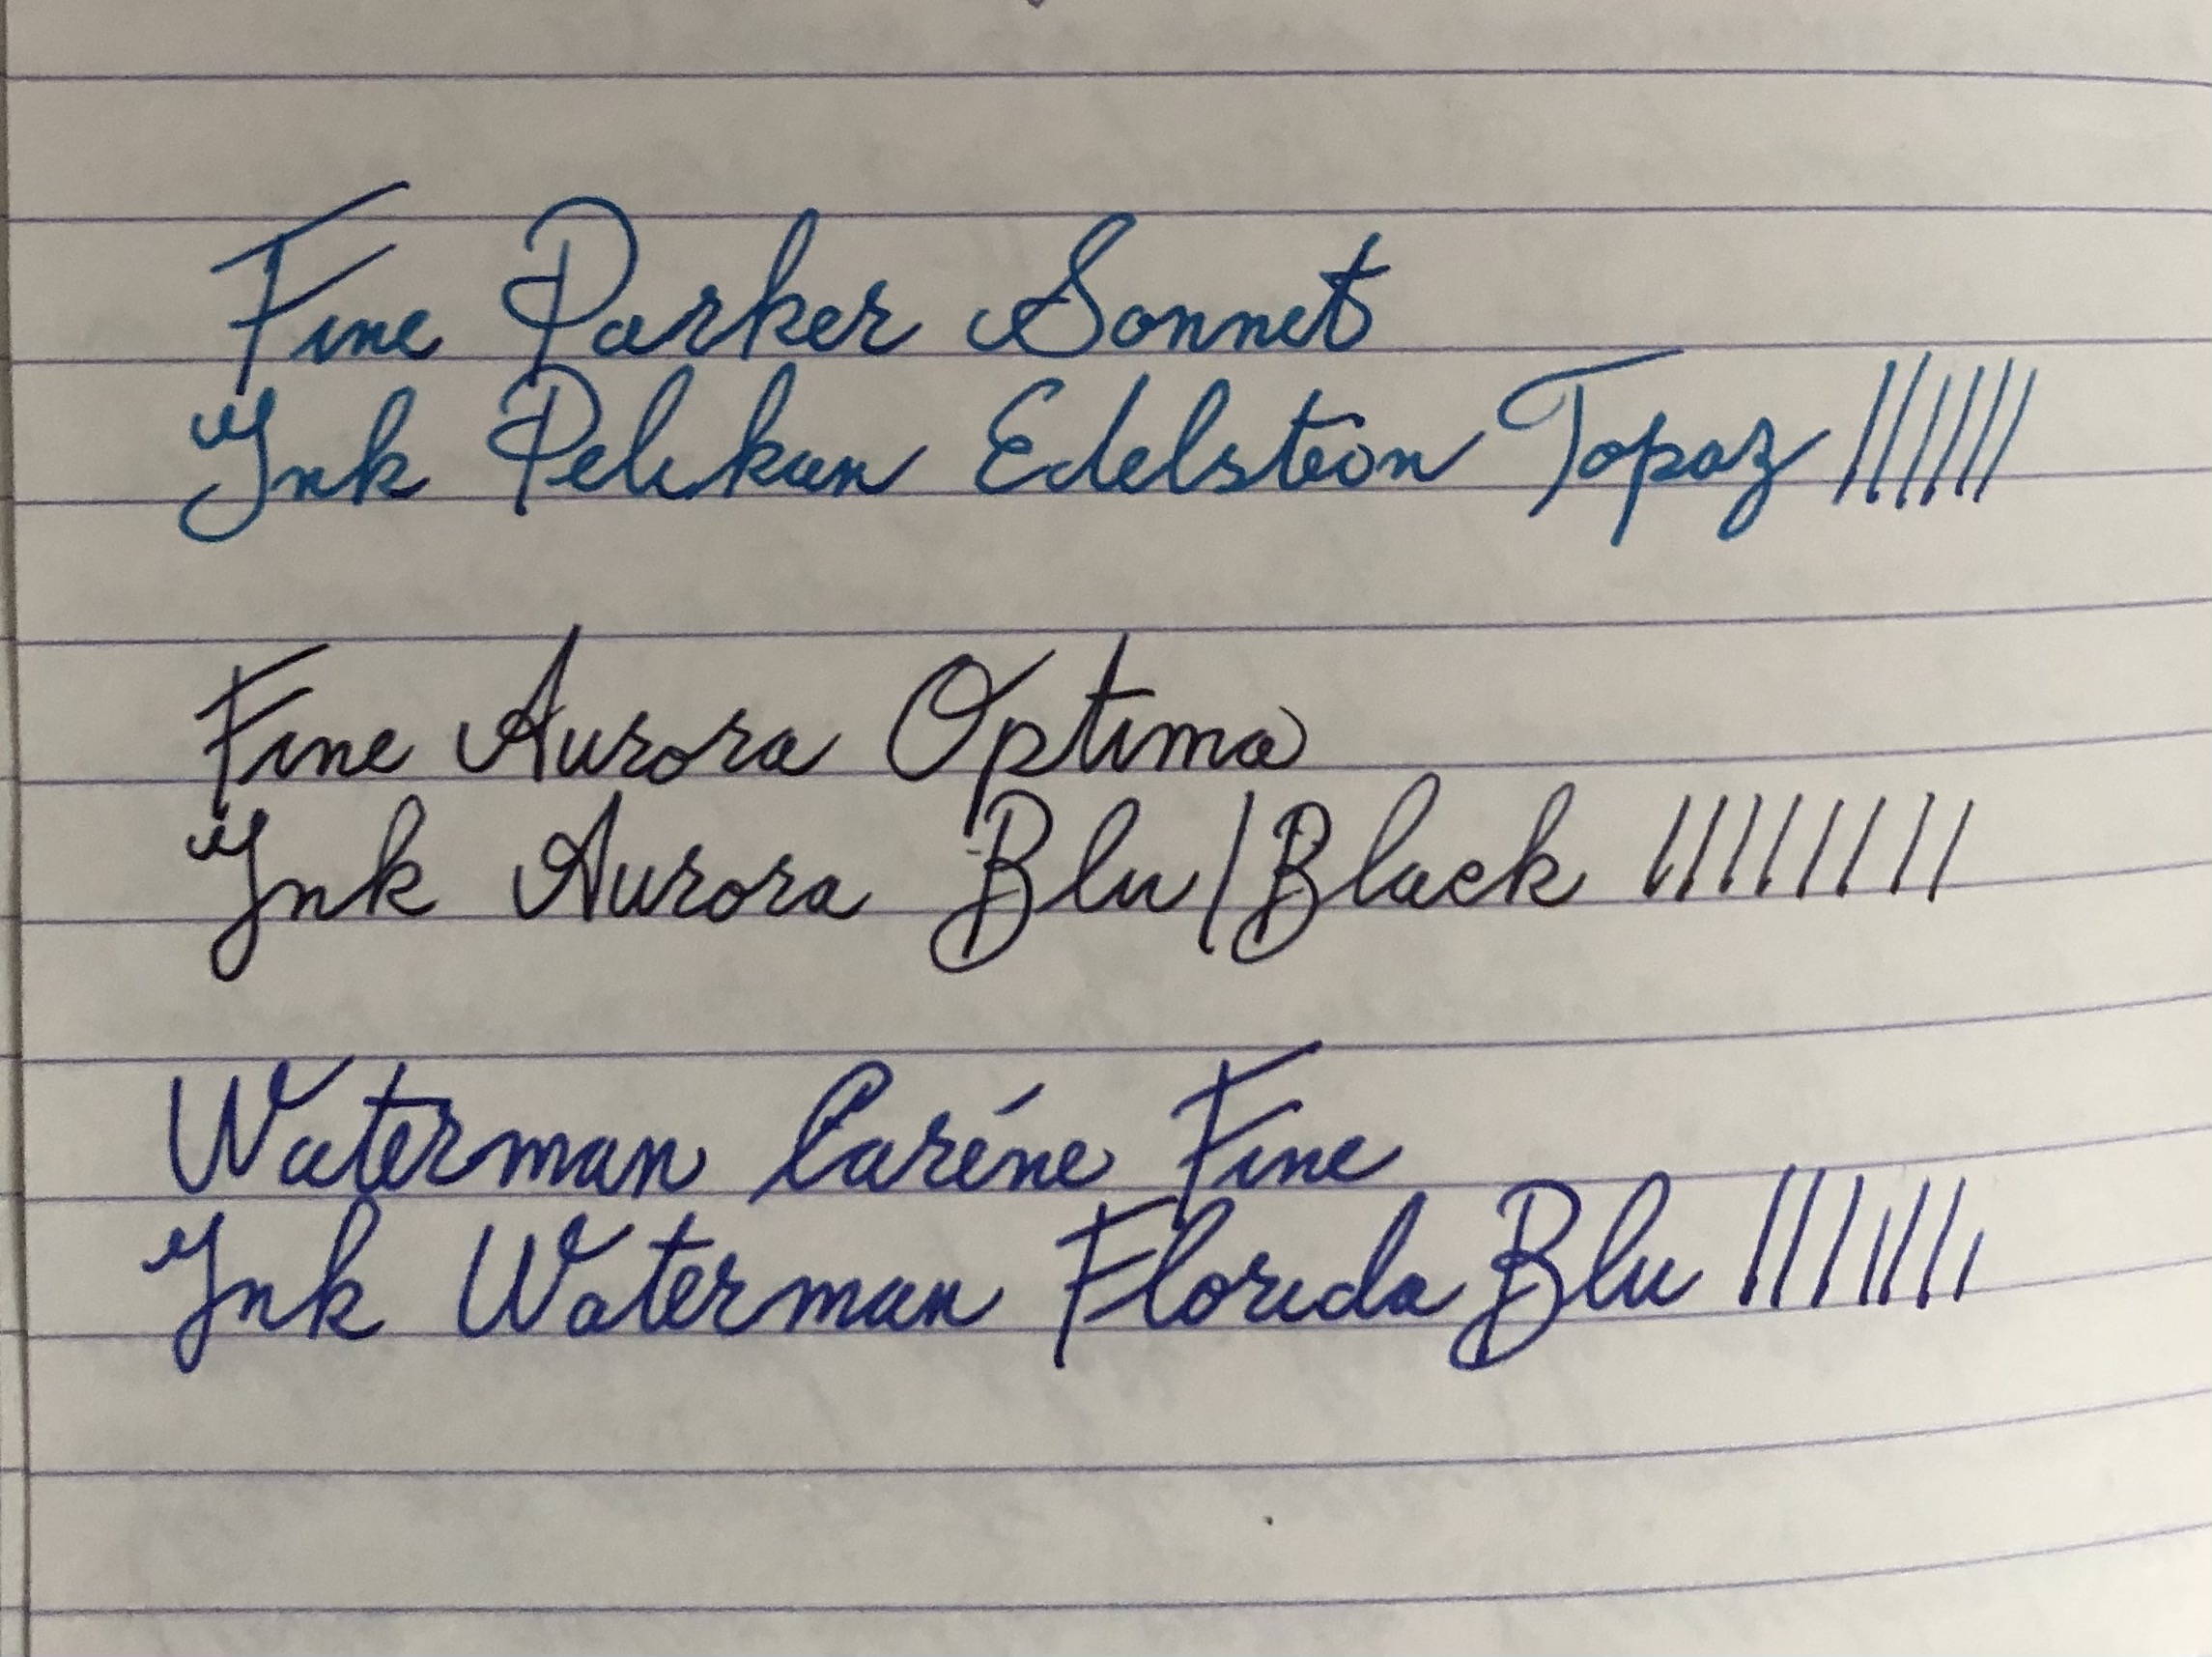 Fine Parker Sonnet
Ink Pelikan Edelsteon Topaz //////
Fine Aurora Optima
Ink Aurora Blu/Black ////////
Waterman Caréne Fine
Ink Waterman Florida Blu ////////